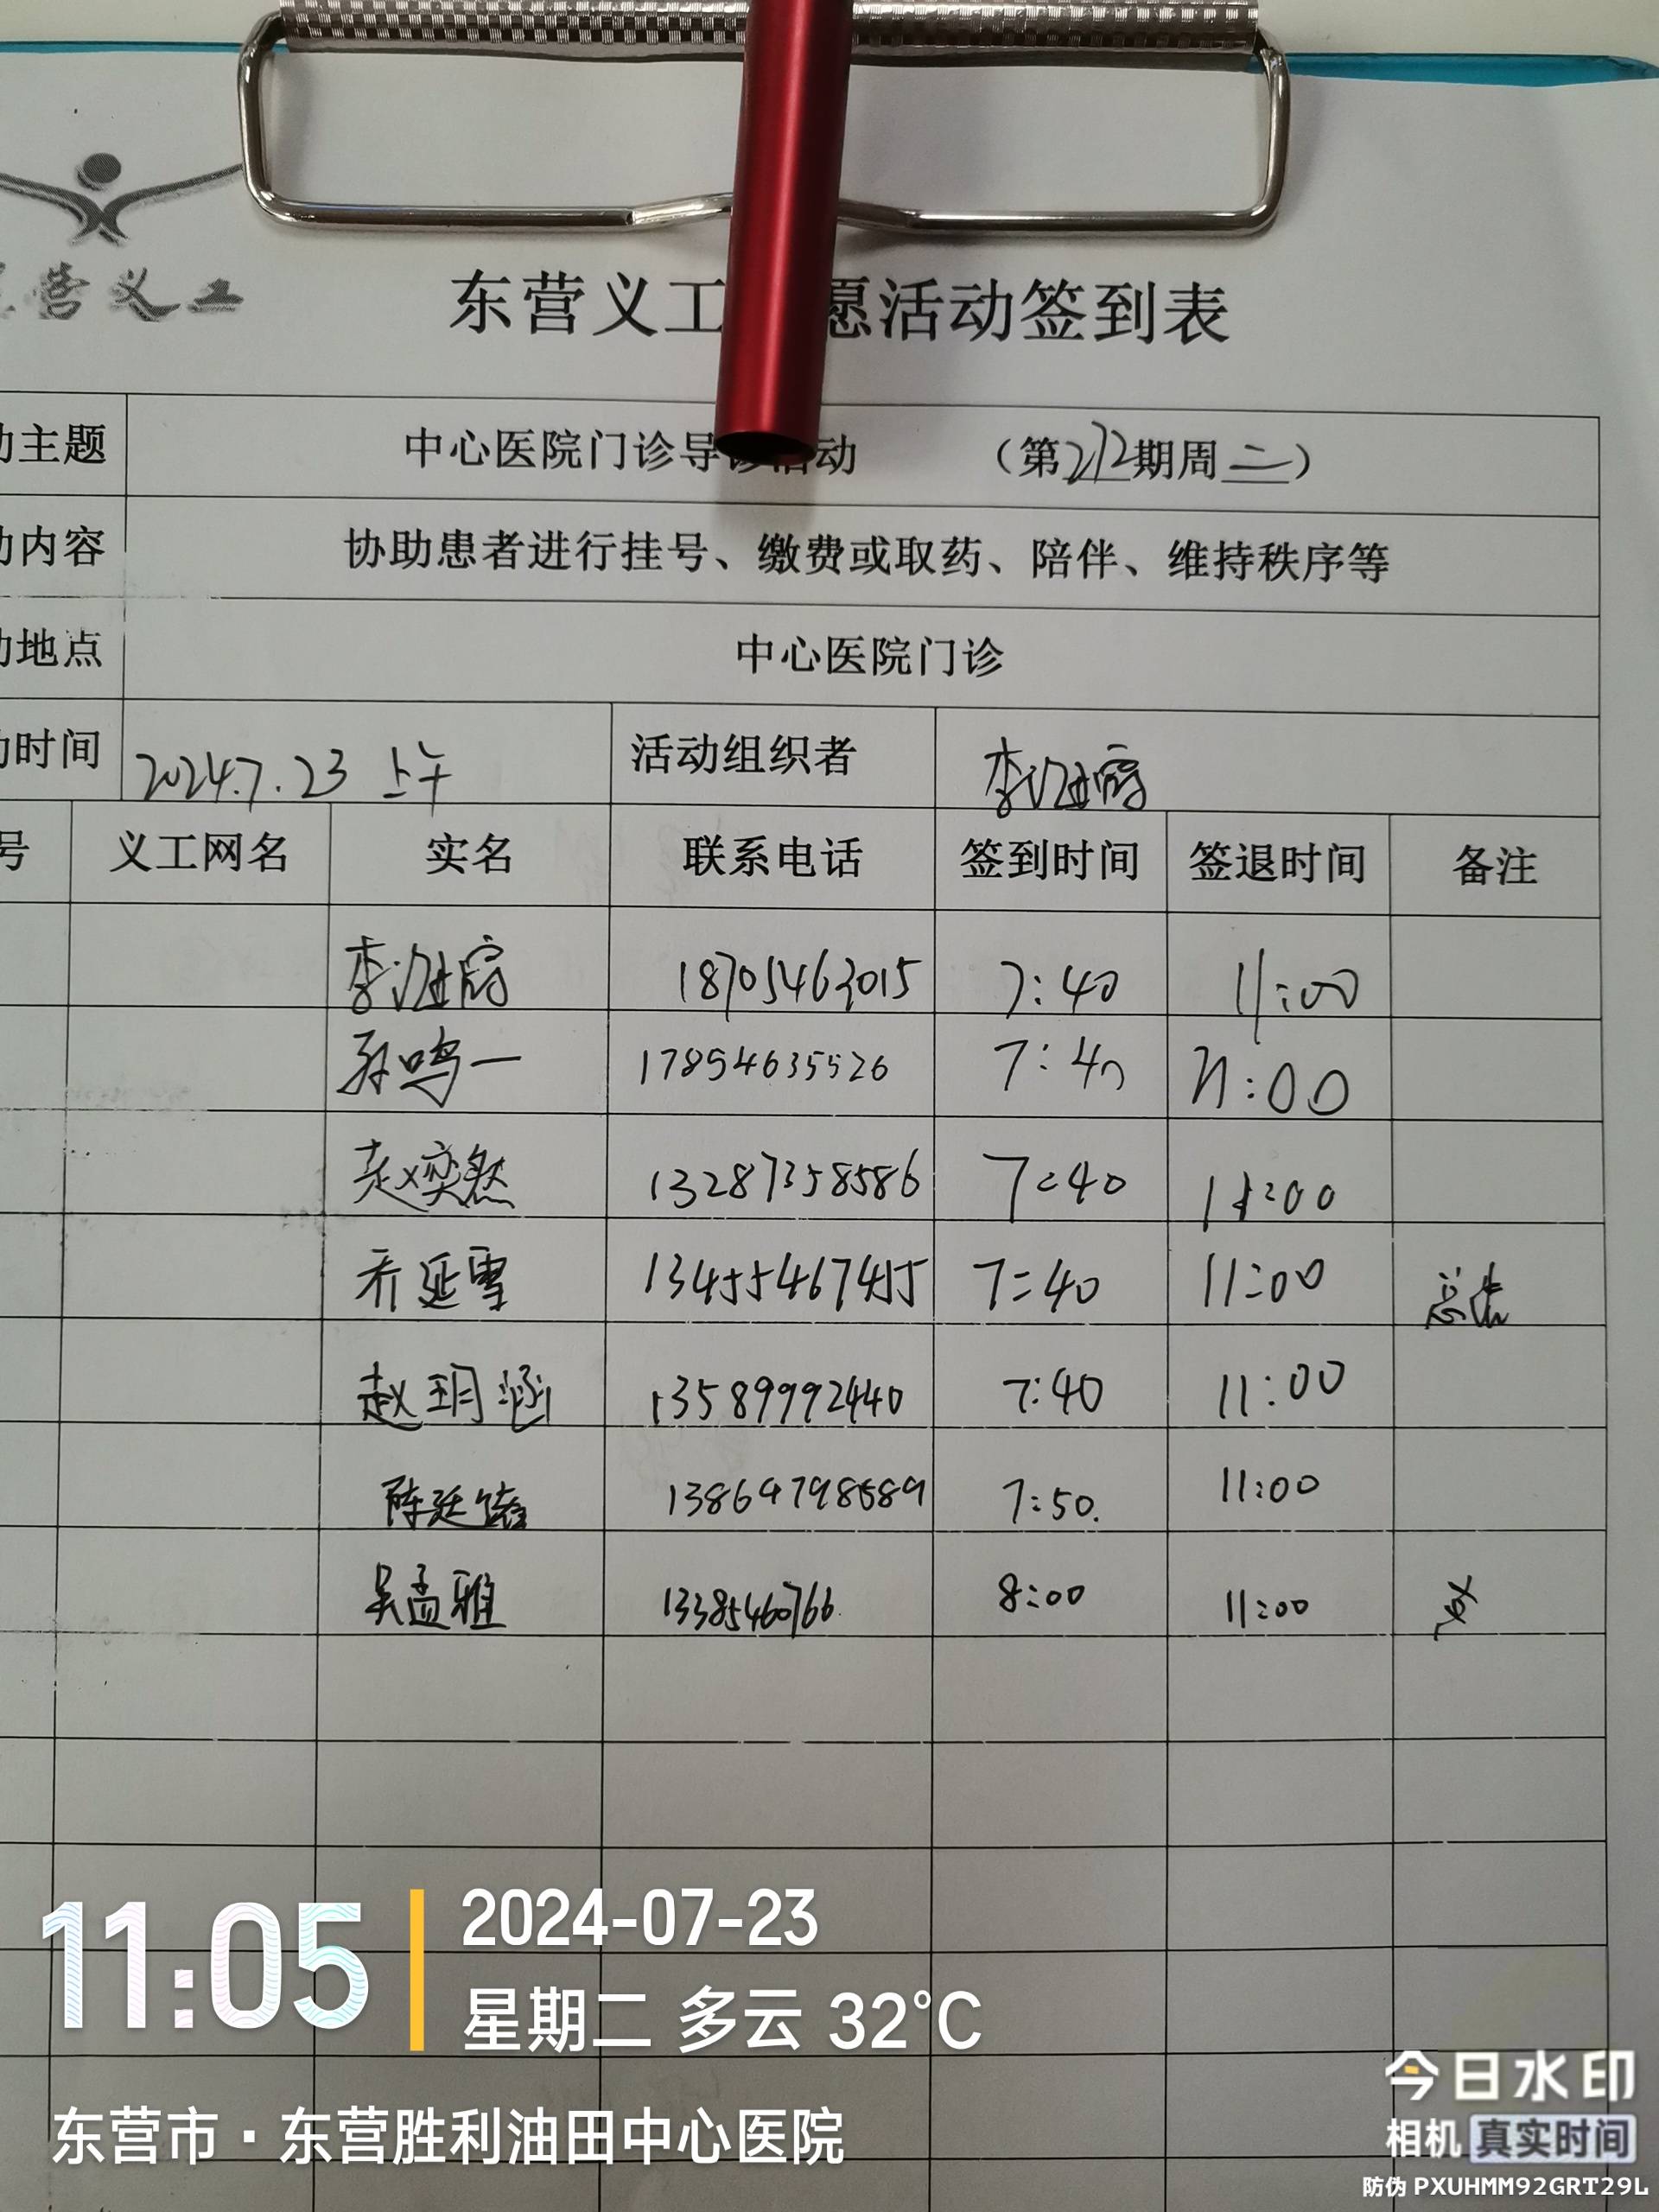 营义工
东营义工 愿活动签到表
主题 中心医院门诊导诊活动 (第212期周二)
内容 协助患者进行挂号、缴费或取药、陪伴、维持秩序等
地点 中心医院门诊
时间 2024.7.23 上午 活动组织者 李
号 义工网名 实名 联系电话 签到时间 签退时间 备注
李 18705463015 7:40 11:00
孙鸣一 17854635526 7:40 11:00
赵奕然 13287358586 7:40 11:00
乔延雪 13455467455 7:40 11:00 总结
赵玥涵 13589992440 7:40 11:00
陈廷 13864798589 7:50. 11:00
吴孟雅 13385460766. 8:00 11:00
11:05
2024-07-23
星期二 多云 32°C
东营市·东营胜利油田中心医院
今日水印
相机 真实时间
防伪 PXUHMM92GRT29L